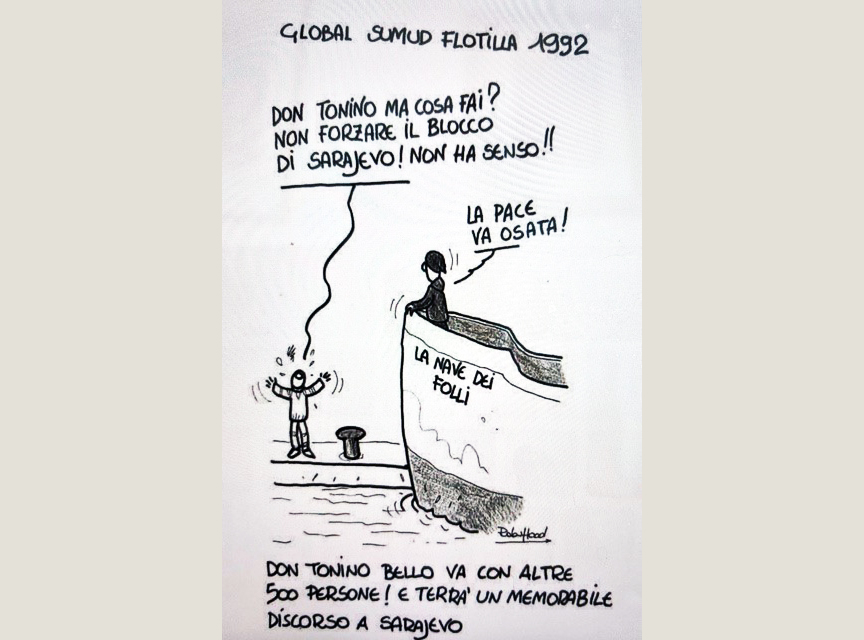 GLOBAL SUMUD FLOTILLA 1992
DON TONINO MA COSA FAI?
NON FORZARE IL BLOCCO
DI SARAJEVO! NON HA SENSO!!
LA PACE
VA OSATA!
LA NAVE DEI
FOLLI
RobinHood
DON TONINO BELLO VA CON ALTRE
500 PERSONE! E TERRA' UN MEMORABILE
DISCORSO A SARAJEVO